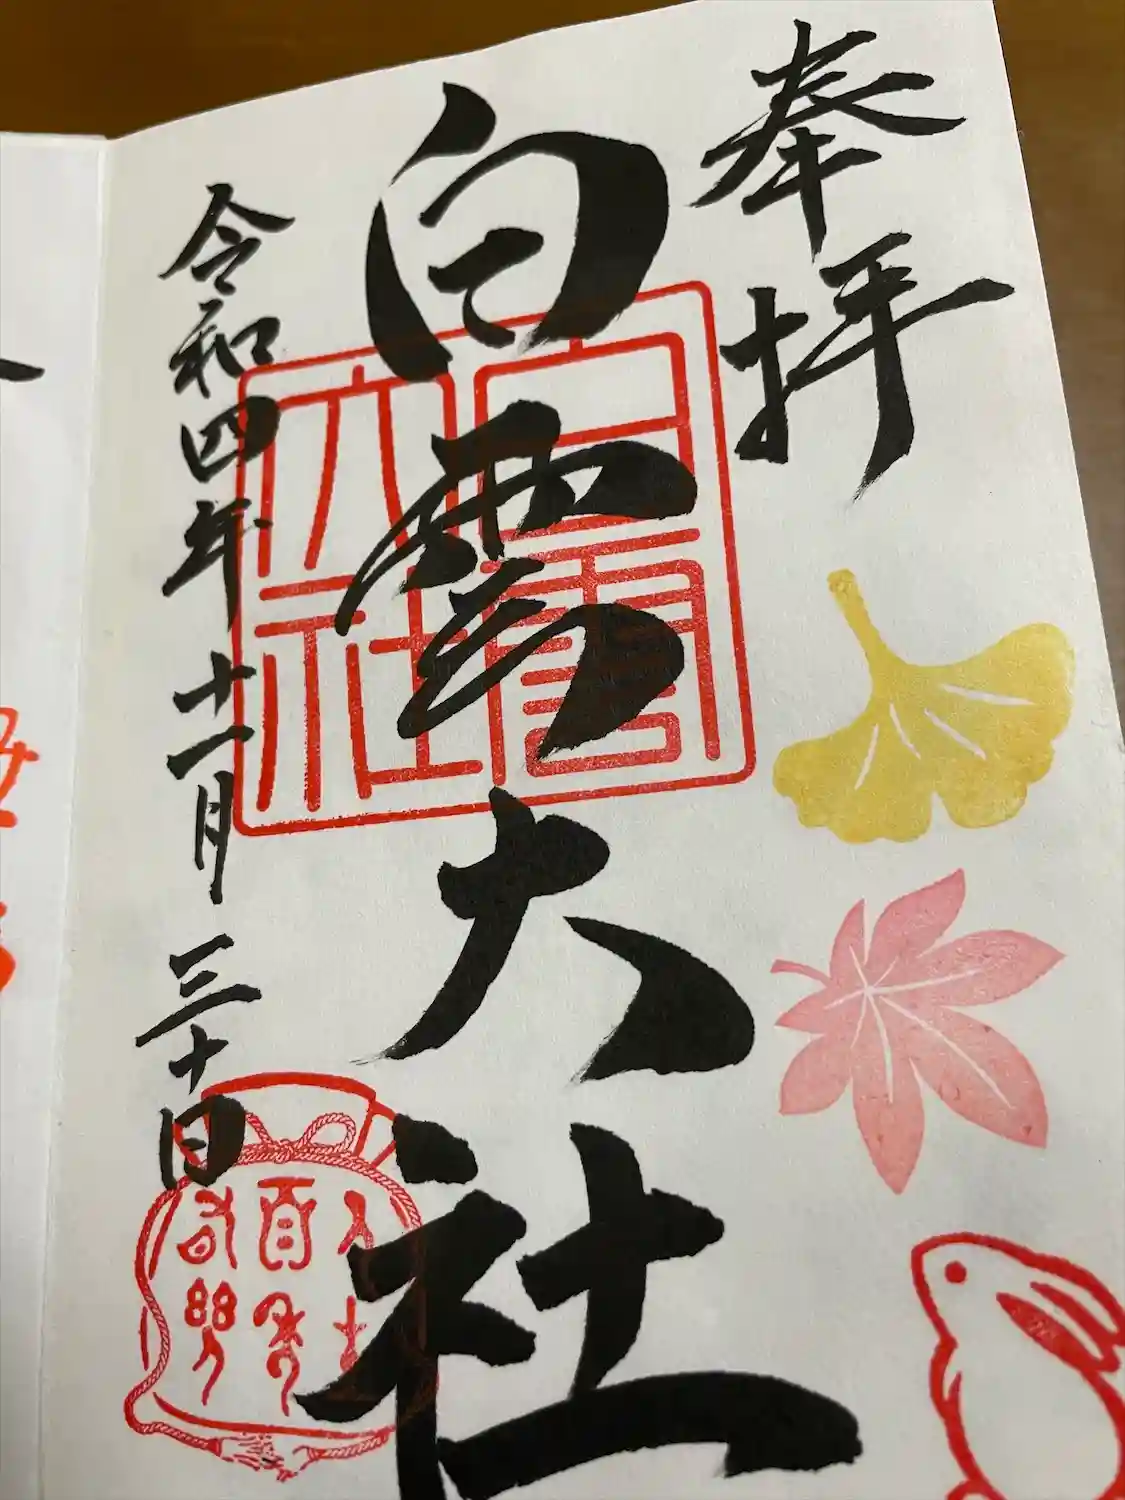 奉拝
白雲大社
令和四年十一月三十日
白雲
大社